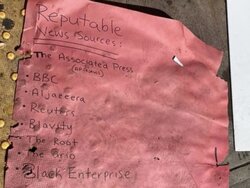 Reputable
News Sources:
• The Associated Press
• BBC
• Aljazeera
• Reuters
• Blavity
• The Root
• The Grio
• Black Enterprise